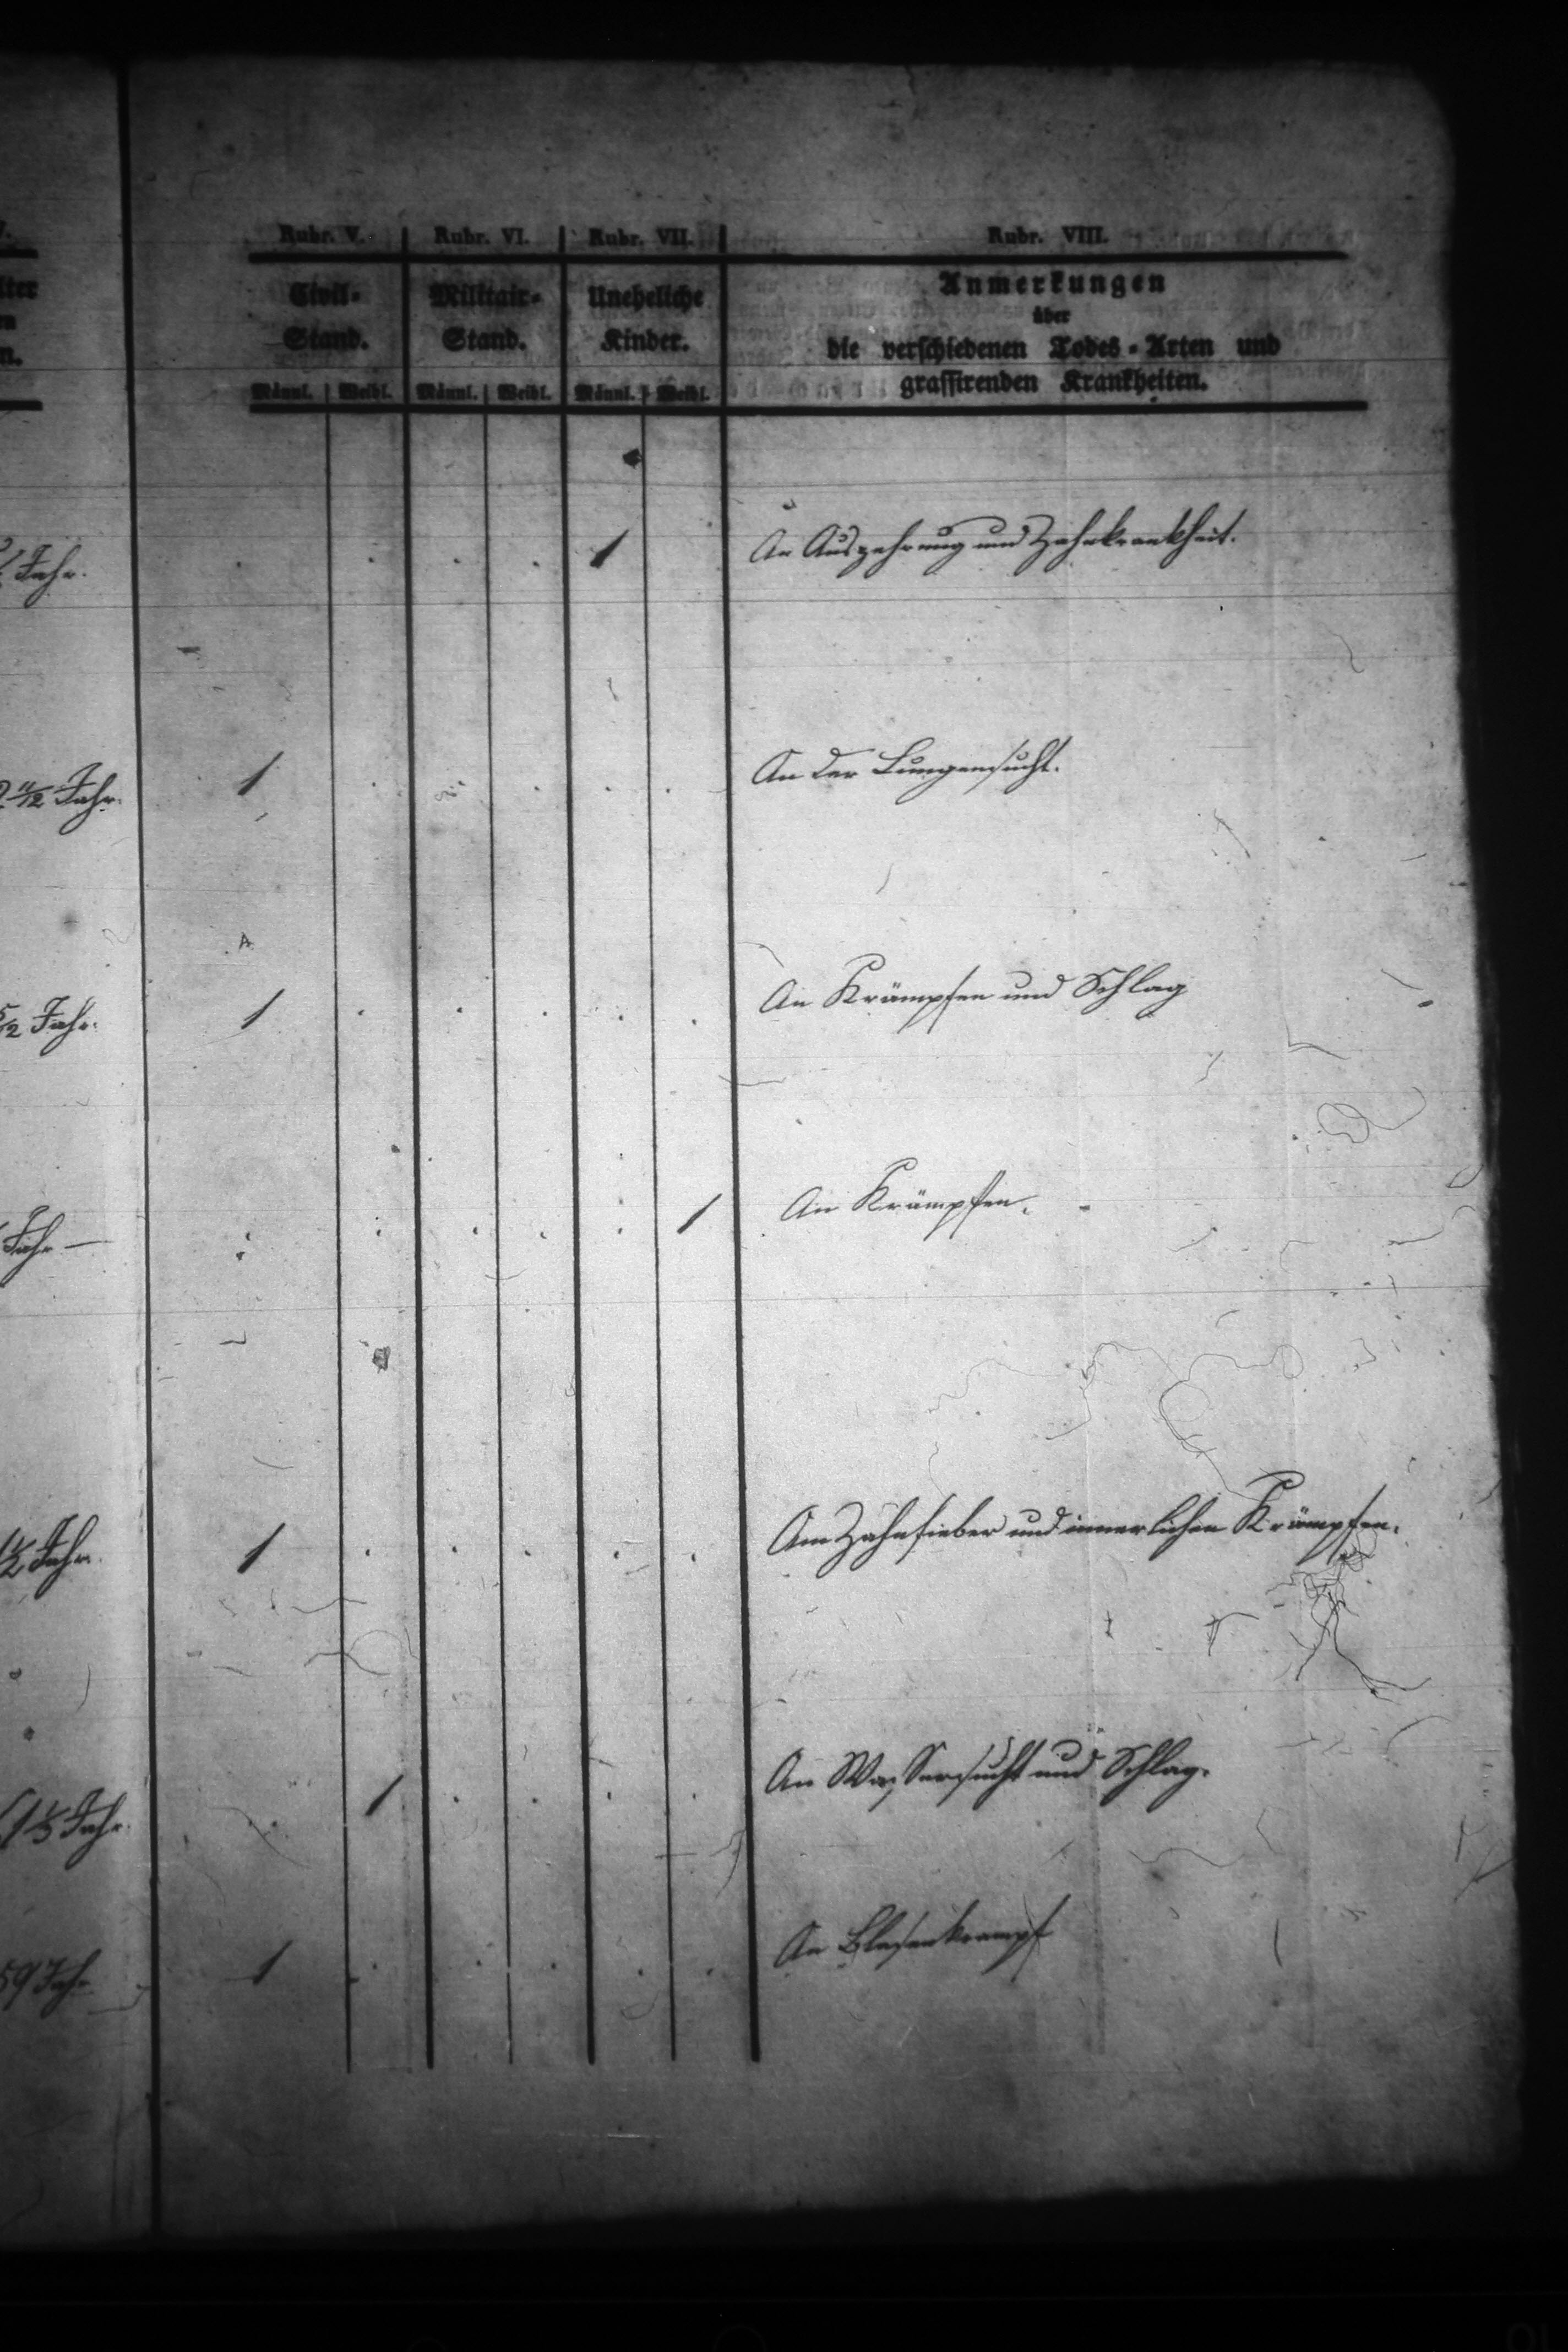 Rubr. V. Rubr. VI. Rubr. VII. Rubr. VIII.
Civil- Militair- Uneheliche Anmerkungen
über
Stand. Stand. Kinder. die verschiedenen Todes-Arten und
grassirenden Krankheiten.
Männl. Weibl. Männl. Weibl. Männl. Weibl.
Jahr. 1 An Auszehrung und Zahnkrankheit.
11/12 Jahr. 1 An der Lungensucht.
5/12 Jahr. 1 An Krämpfen und Schlag
Jahr — 1 An Krämpfen.
1/2 Jahr. 1 Am Zahnfieber und innerlichen Krämpfen.
Jahr. 1 An Wassersucht und Schlag.
59 Jahr 1 An Blasenkrampf